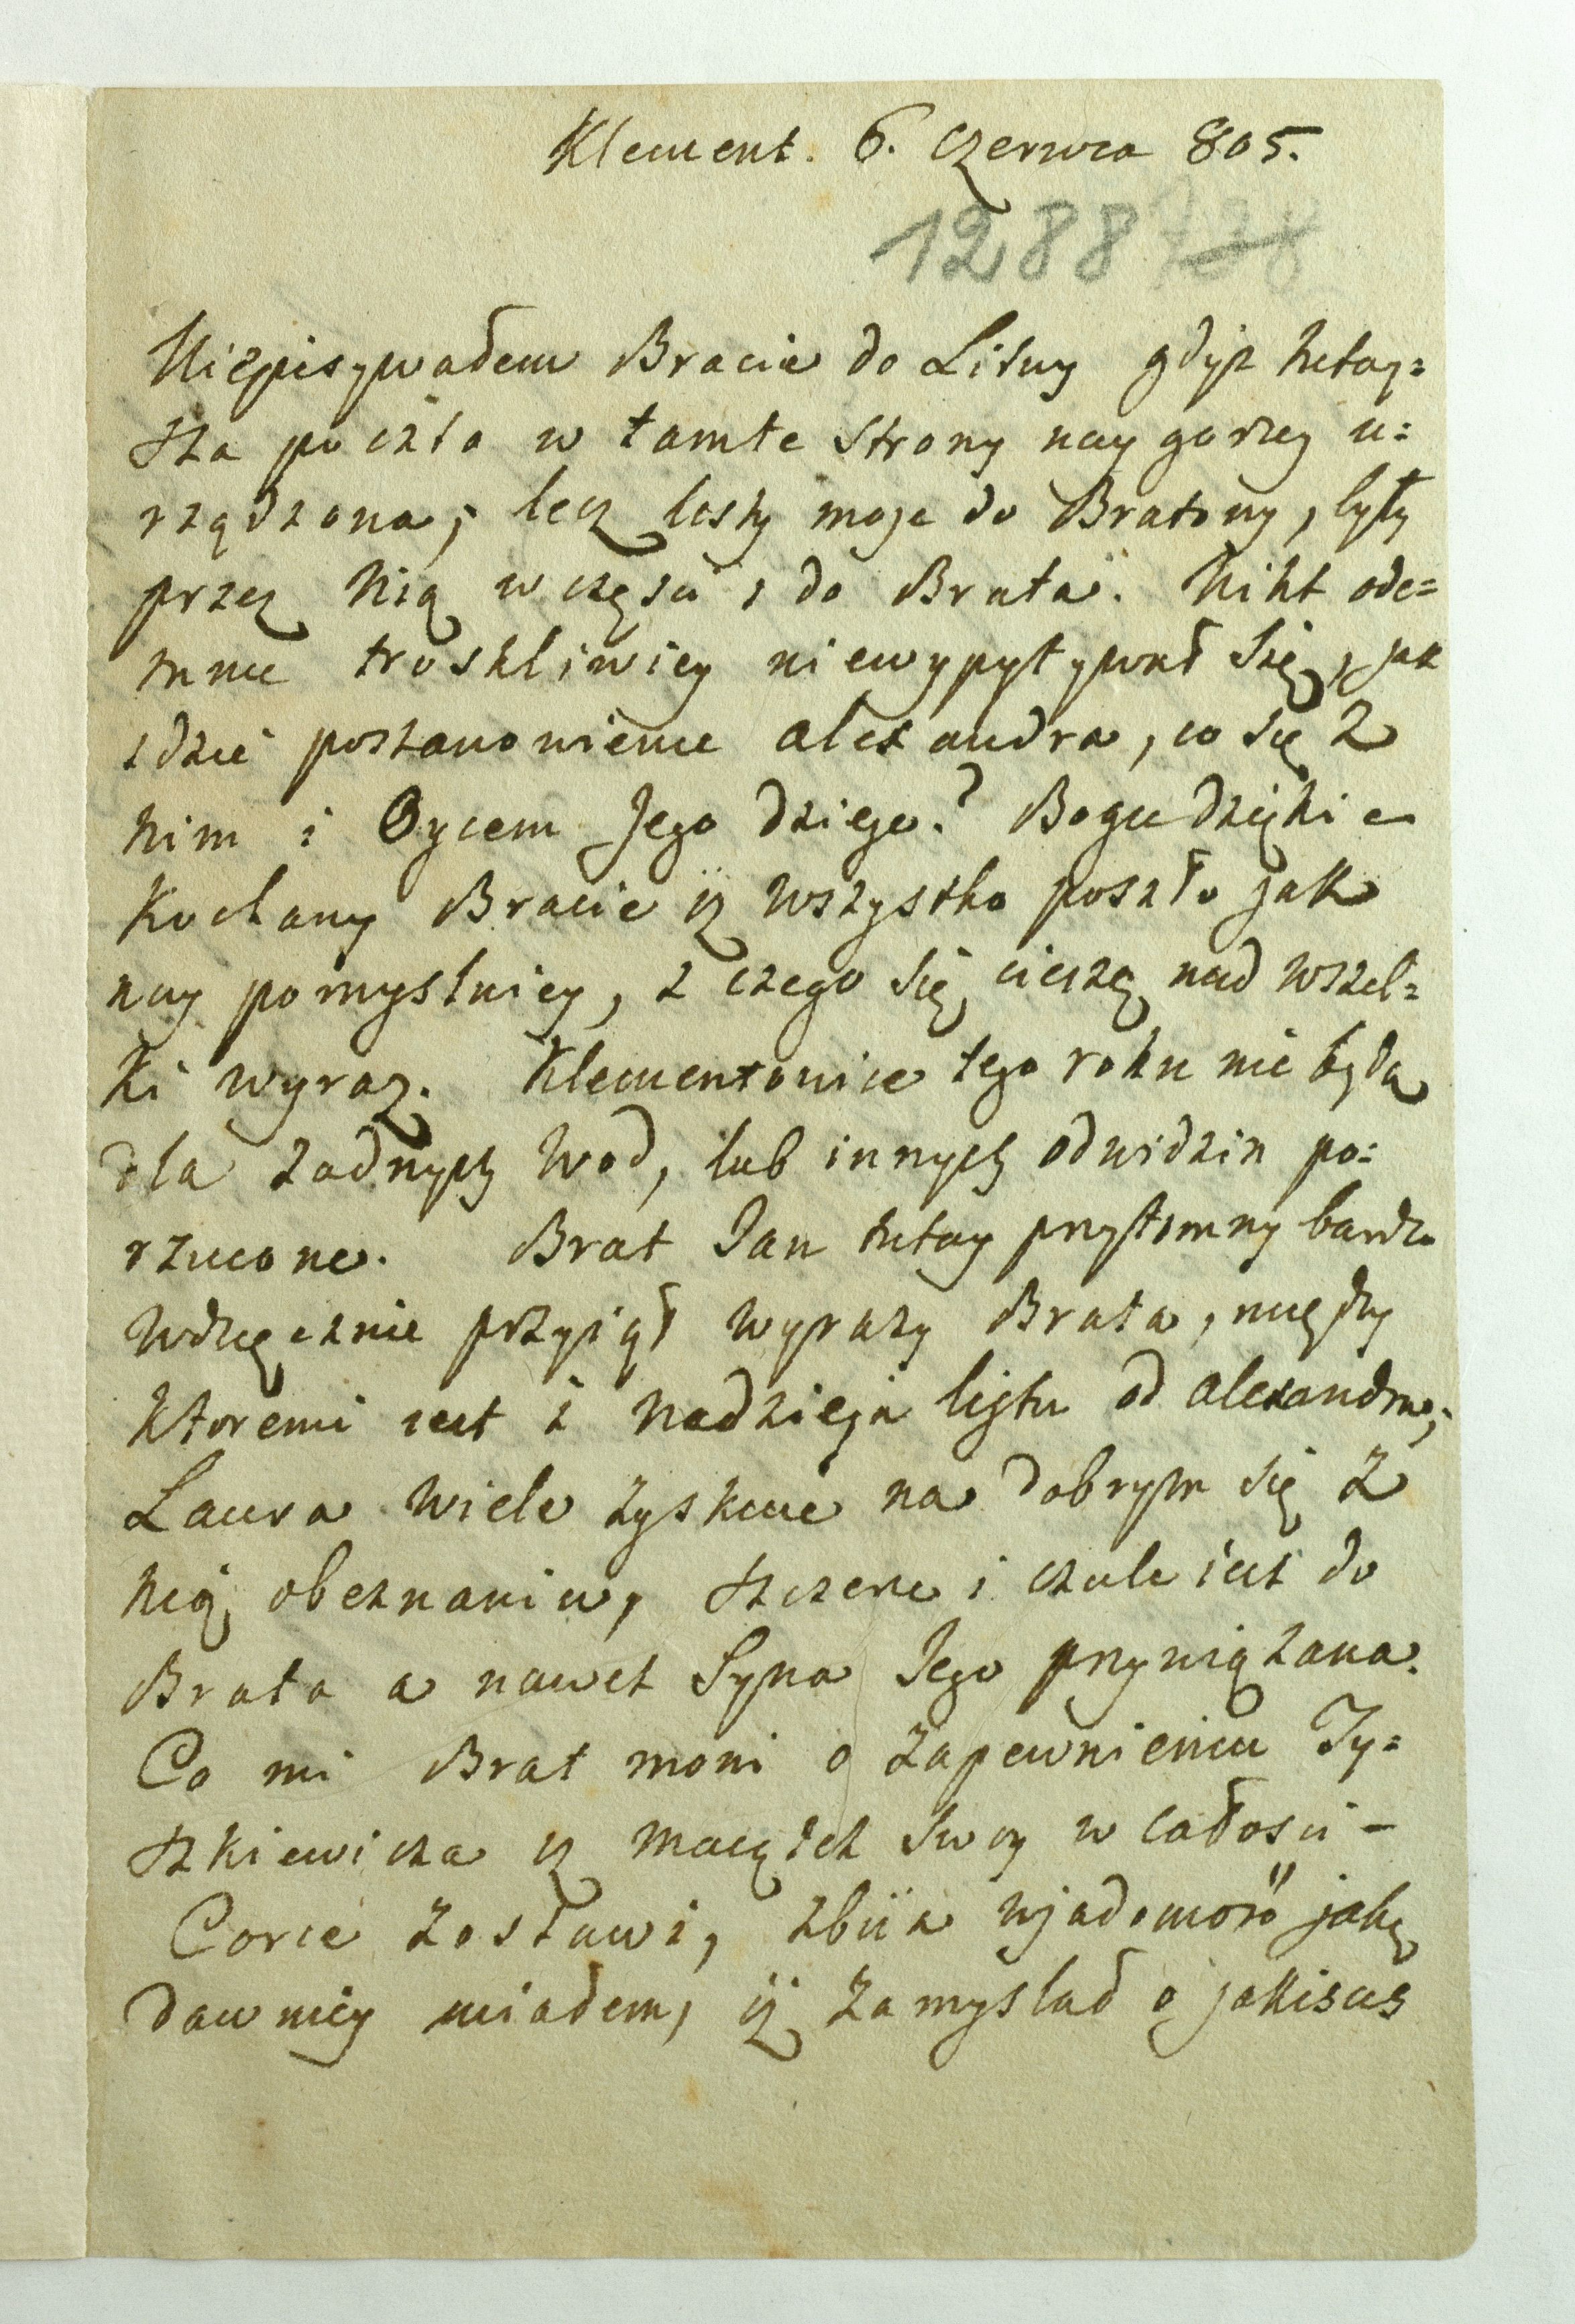 Klement. 6. Czerwca 805.
1288 738
Niepisywałem Bracie do Litwy gdyż tutay=
sza poczta w tamte strony nay gorzey u=
rządzona; lecz listy moje do Bratowy, były
przez Nią w części i do Brata. Nikt ode=
mnie troskliwiey niewypytywał się, jak
idzie postanowienie Alexandra, co się z
nim i Oycem Jego dzieje? Bogu dzięki
Kochany Bracie iż wszystko poszło jak
nay pomyslniey, z czego się cieszę nad wszel=
ki wyraz. Klementowice tego roku nie będą
dla żadnych Wod, lub innych odwidzin po=
rzucone. Brat Jan tutay przytomny bardzo
wdzięcznie przyiął wyrazy Brata, między
ktoremi iest i nadzieja listu od Alexandra;
Laura wiele zyskuie na dobrym się z
nią obeznaniu, szczerze i czule iest do
Brata a nawet Syna Jego przywiązana.
Co mi Brat mowi o zapewnieniu Ty=
szkiewicza iż Maiątek swoy w całosci -
Corce zostawi, zbiia wjadomość jaką
dawniey miałem, iż zamyslał o jakisus